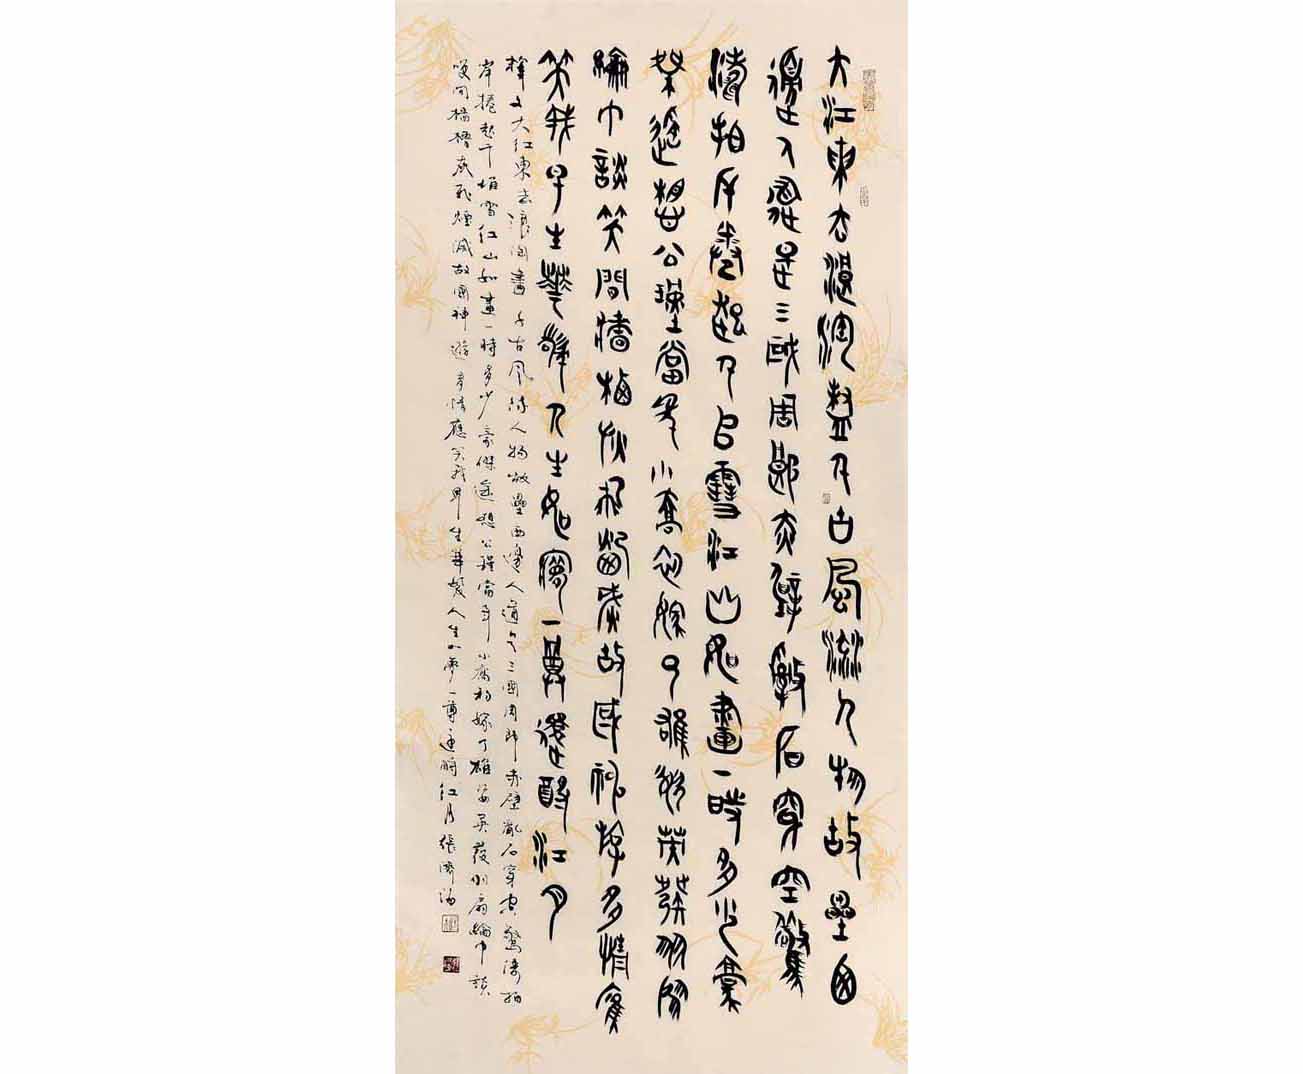 大江東去浪淘盡千古風流人物故壘西
邊人道是三國周郎赤壁亂石穿空驚
濤拍岸捲起千堆雪江山如畫一時多少豪
傑遙想公瑾當年小喬初嫁了雄姿英發羽扇
綸巾談笑間檣櫓灰飛煙滅故國神遊多情應
笑我早生華髮人生如夢一尊還酹江月
釋文大江東去浪淘盡千古風流人物故壘西邊人道是三國周郎赤壁亂石穿空驚濤拍
岸捲起千堆雪江山如畫一時多少豪傑遙想公瑾當年小喬初嫁了雄姿英發羽扇綸巾談
笑間檣櫓灰飛煙滅故國神遊多情應笑我早生華髮人生如夢一尊還酹江月張濟